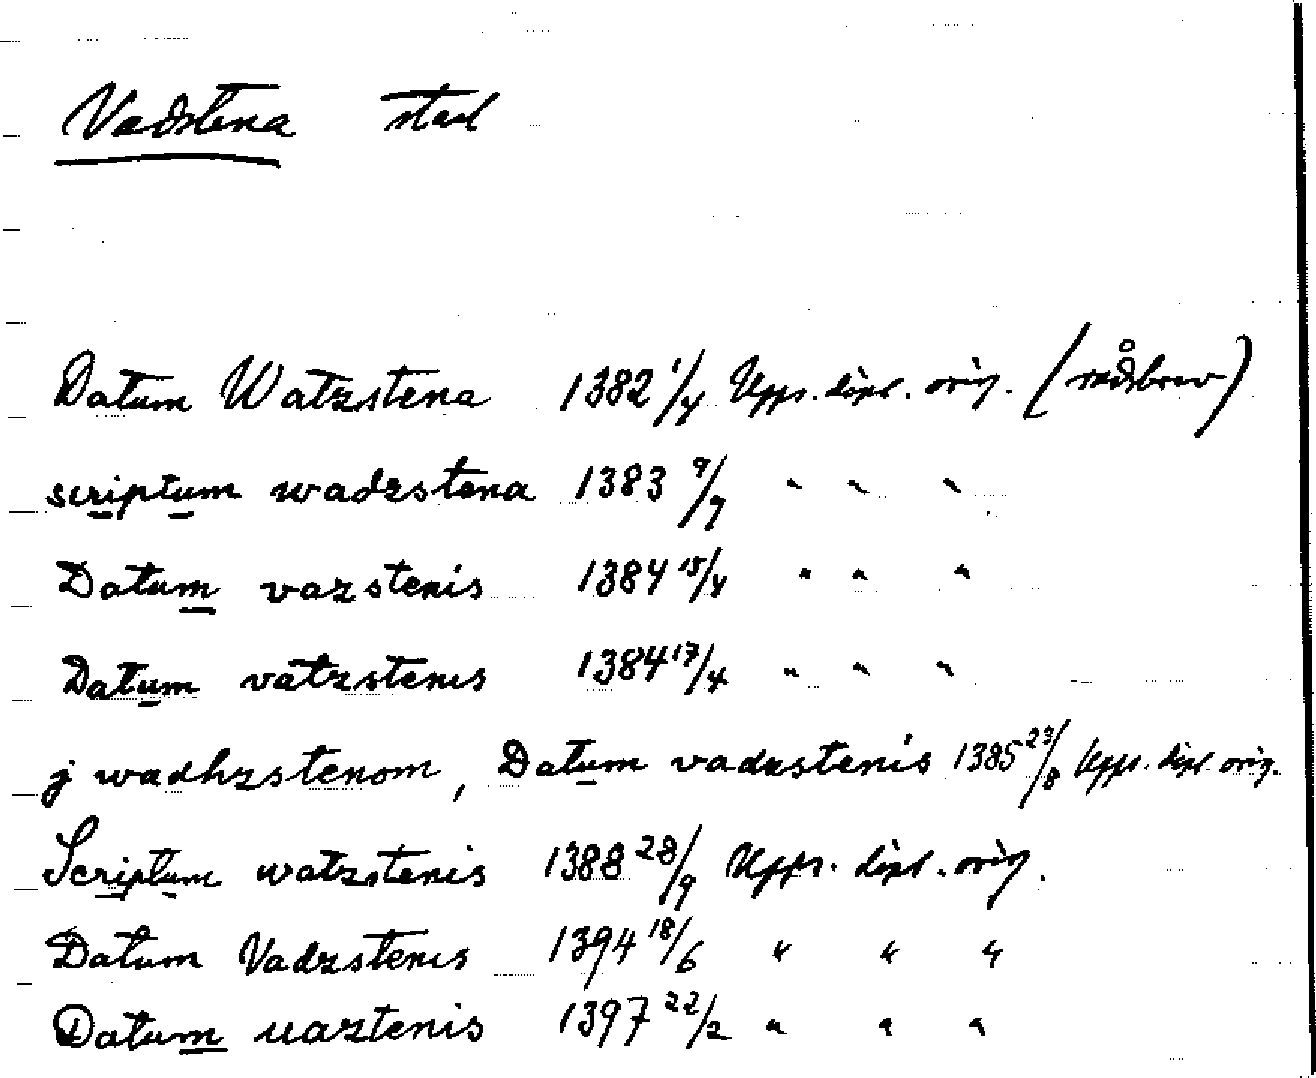 Vadstena stad
Datum Watzstena 1382 1/4 Upps. dipl. orig. (rådsbrev)
scriptum wadzstena 1383 9/7 " " "
Datum vazstenis 1384 15/4 " " "
Datum vatzstenis 1384 17/4 " " "
j wadhzstenom, Datum vadzstenis 1385 23/8 Upps. dipl. orig.
Scriptum watzstenis 1388 28/9 Upps. dipl. orig.
Datum Vadzstenis 1394 18/6 " " "
Datum uaztenis 1397 22/2 " " "